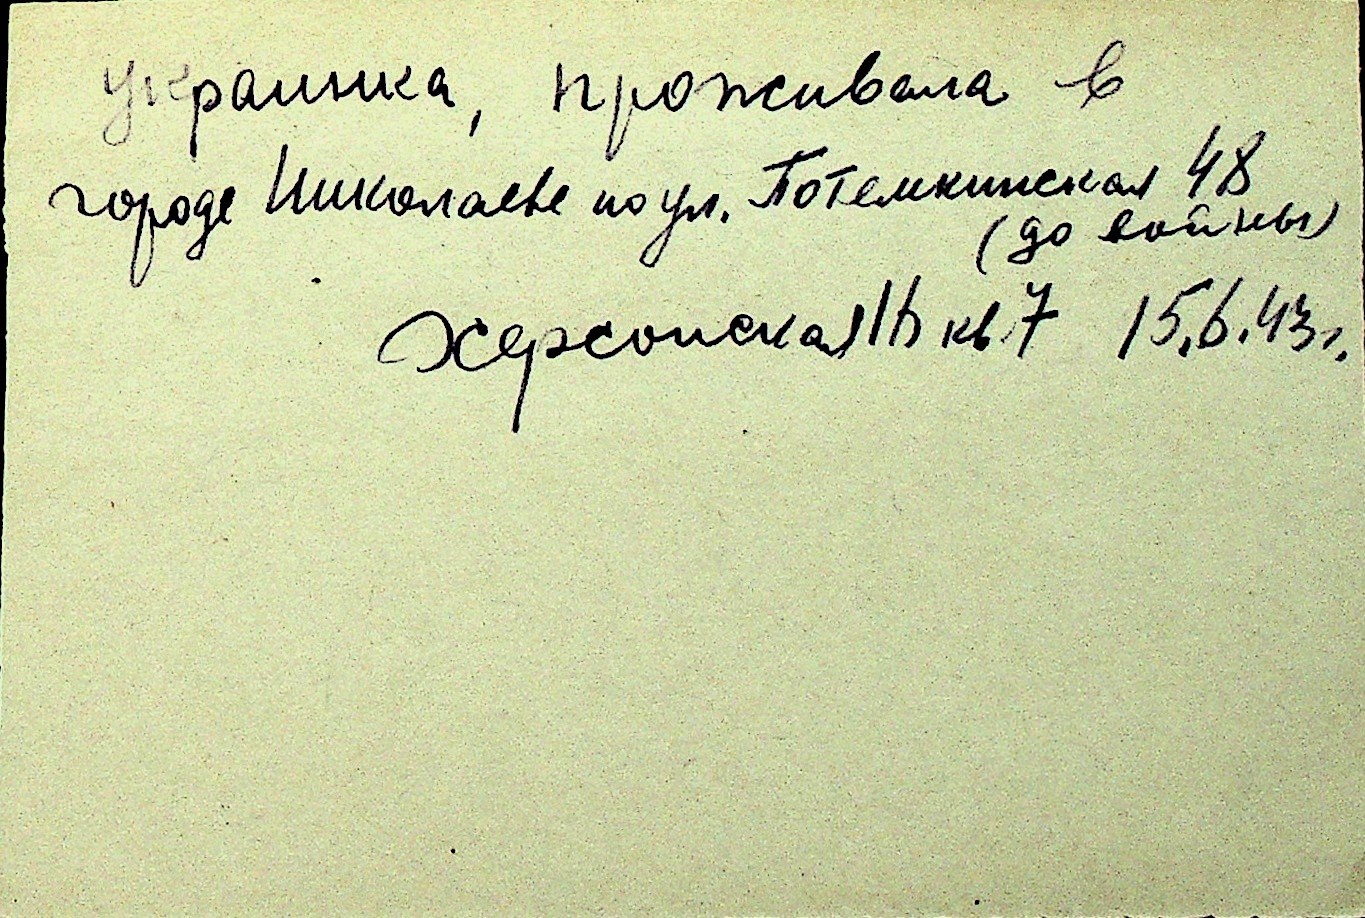 украинка, проживала в
городе Николаеве по ул. Потемкинская 48
(до войны)
Херсонская 16 кв 7 15.6.43г.